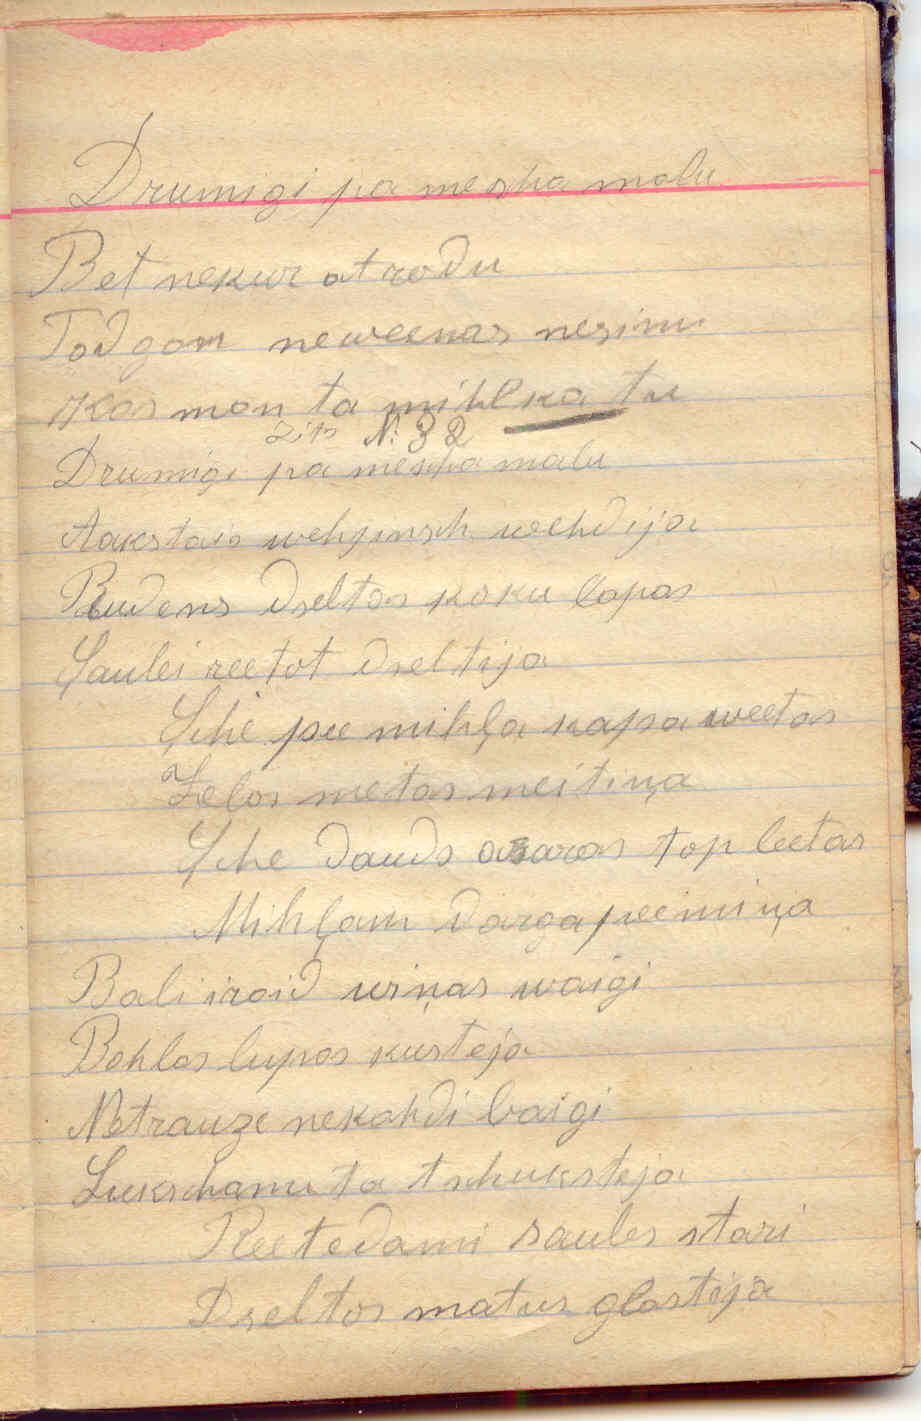 Drumigi pa mescha malu
Bet nekur atrodu
Tad gan neweenas nesinu
Kas man ta mihlka tu
Zits N: 32
Drumigi pa mescha malu
Aukstais wehjinsch wehdija
Rudens dseltas koku lapas
Saulei reetot dseltija
Sche pee mihļa kapa weetas
Zelos metas meitiņa
Sche dauds asaras top leetas
Mihļam darga peemiņa
Bali iraid wiņas waigi
Bahlas lupas kusteja
Netrauze nekahdi baigi
Lukschanu ta tschuksteja
Reetedami saules stari
Dseltos matus glastija